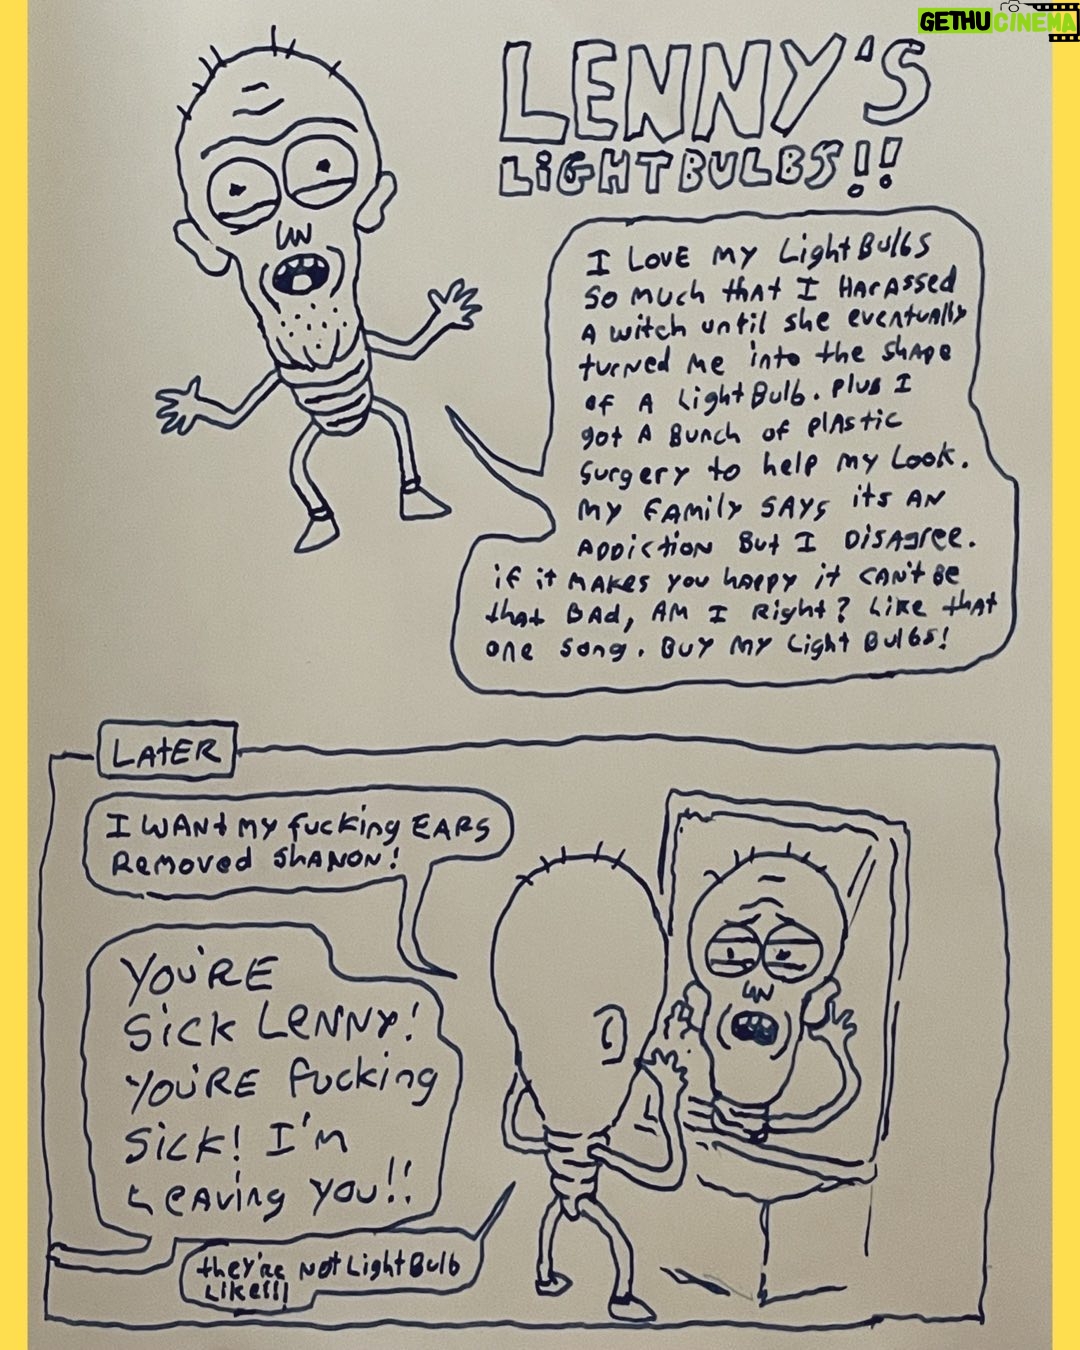 GETHUCINEMA
LENNY'S
LIGHTBULBS!!
I LOVE MY LightBulbs
So much that I HArAssed
A witch until she eventuAlly
turned me into the shApe
of A LightBulb. Plus I
got A Bunch of plAstic
Surgery to help my Look.
My FAmily SAYs its AN
ADDiction But I DisAgree.
if it MAKes you hAppy it CAN't Be
thAt BAD, AM I Right? Like thAt
one song. BUY MY Light Bulbs!
LAtER
I WANt MY fucking EARS
Removed SHANON!
YOU'RE
Sick LENNY!
YOU'RE fucking
Sick! I'm
LeAving you!!
they're Not LightBulb
Like!!!